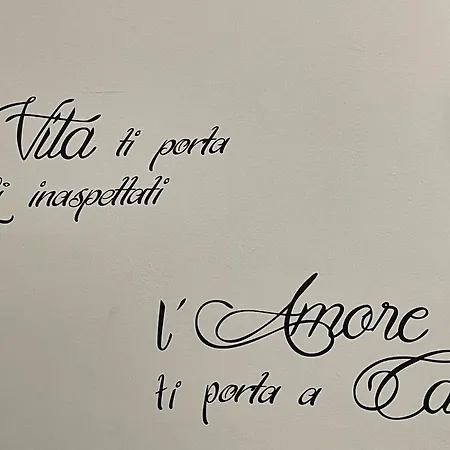 Vita ti porta
inaspettati
l'Amore
ti porta a